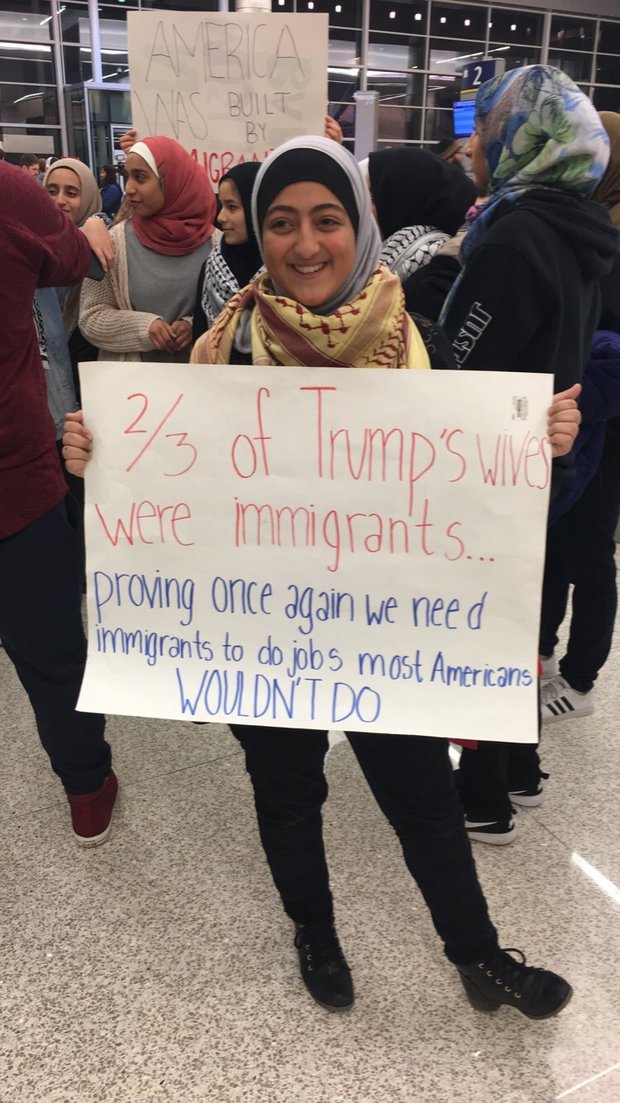 AMERICA
WAS BUILT
BY
2
2/3 of Trump's wives
were immigrants...
proving once again we need
immigrants to do jobs most Americans
WOULDN'T DO
JUST